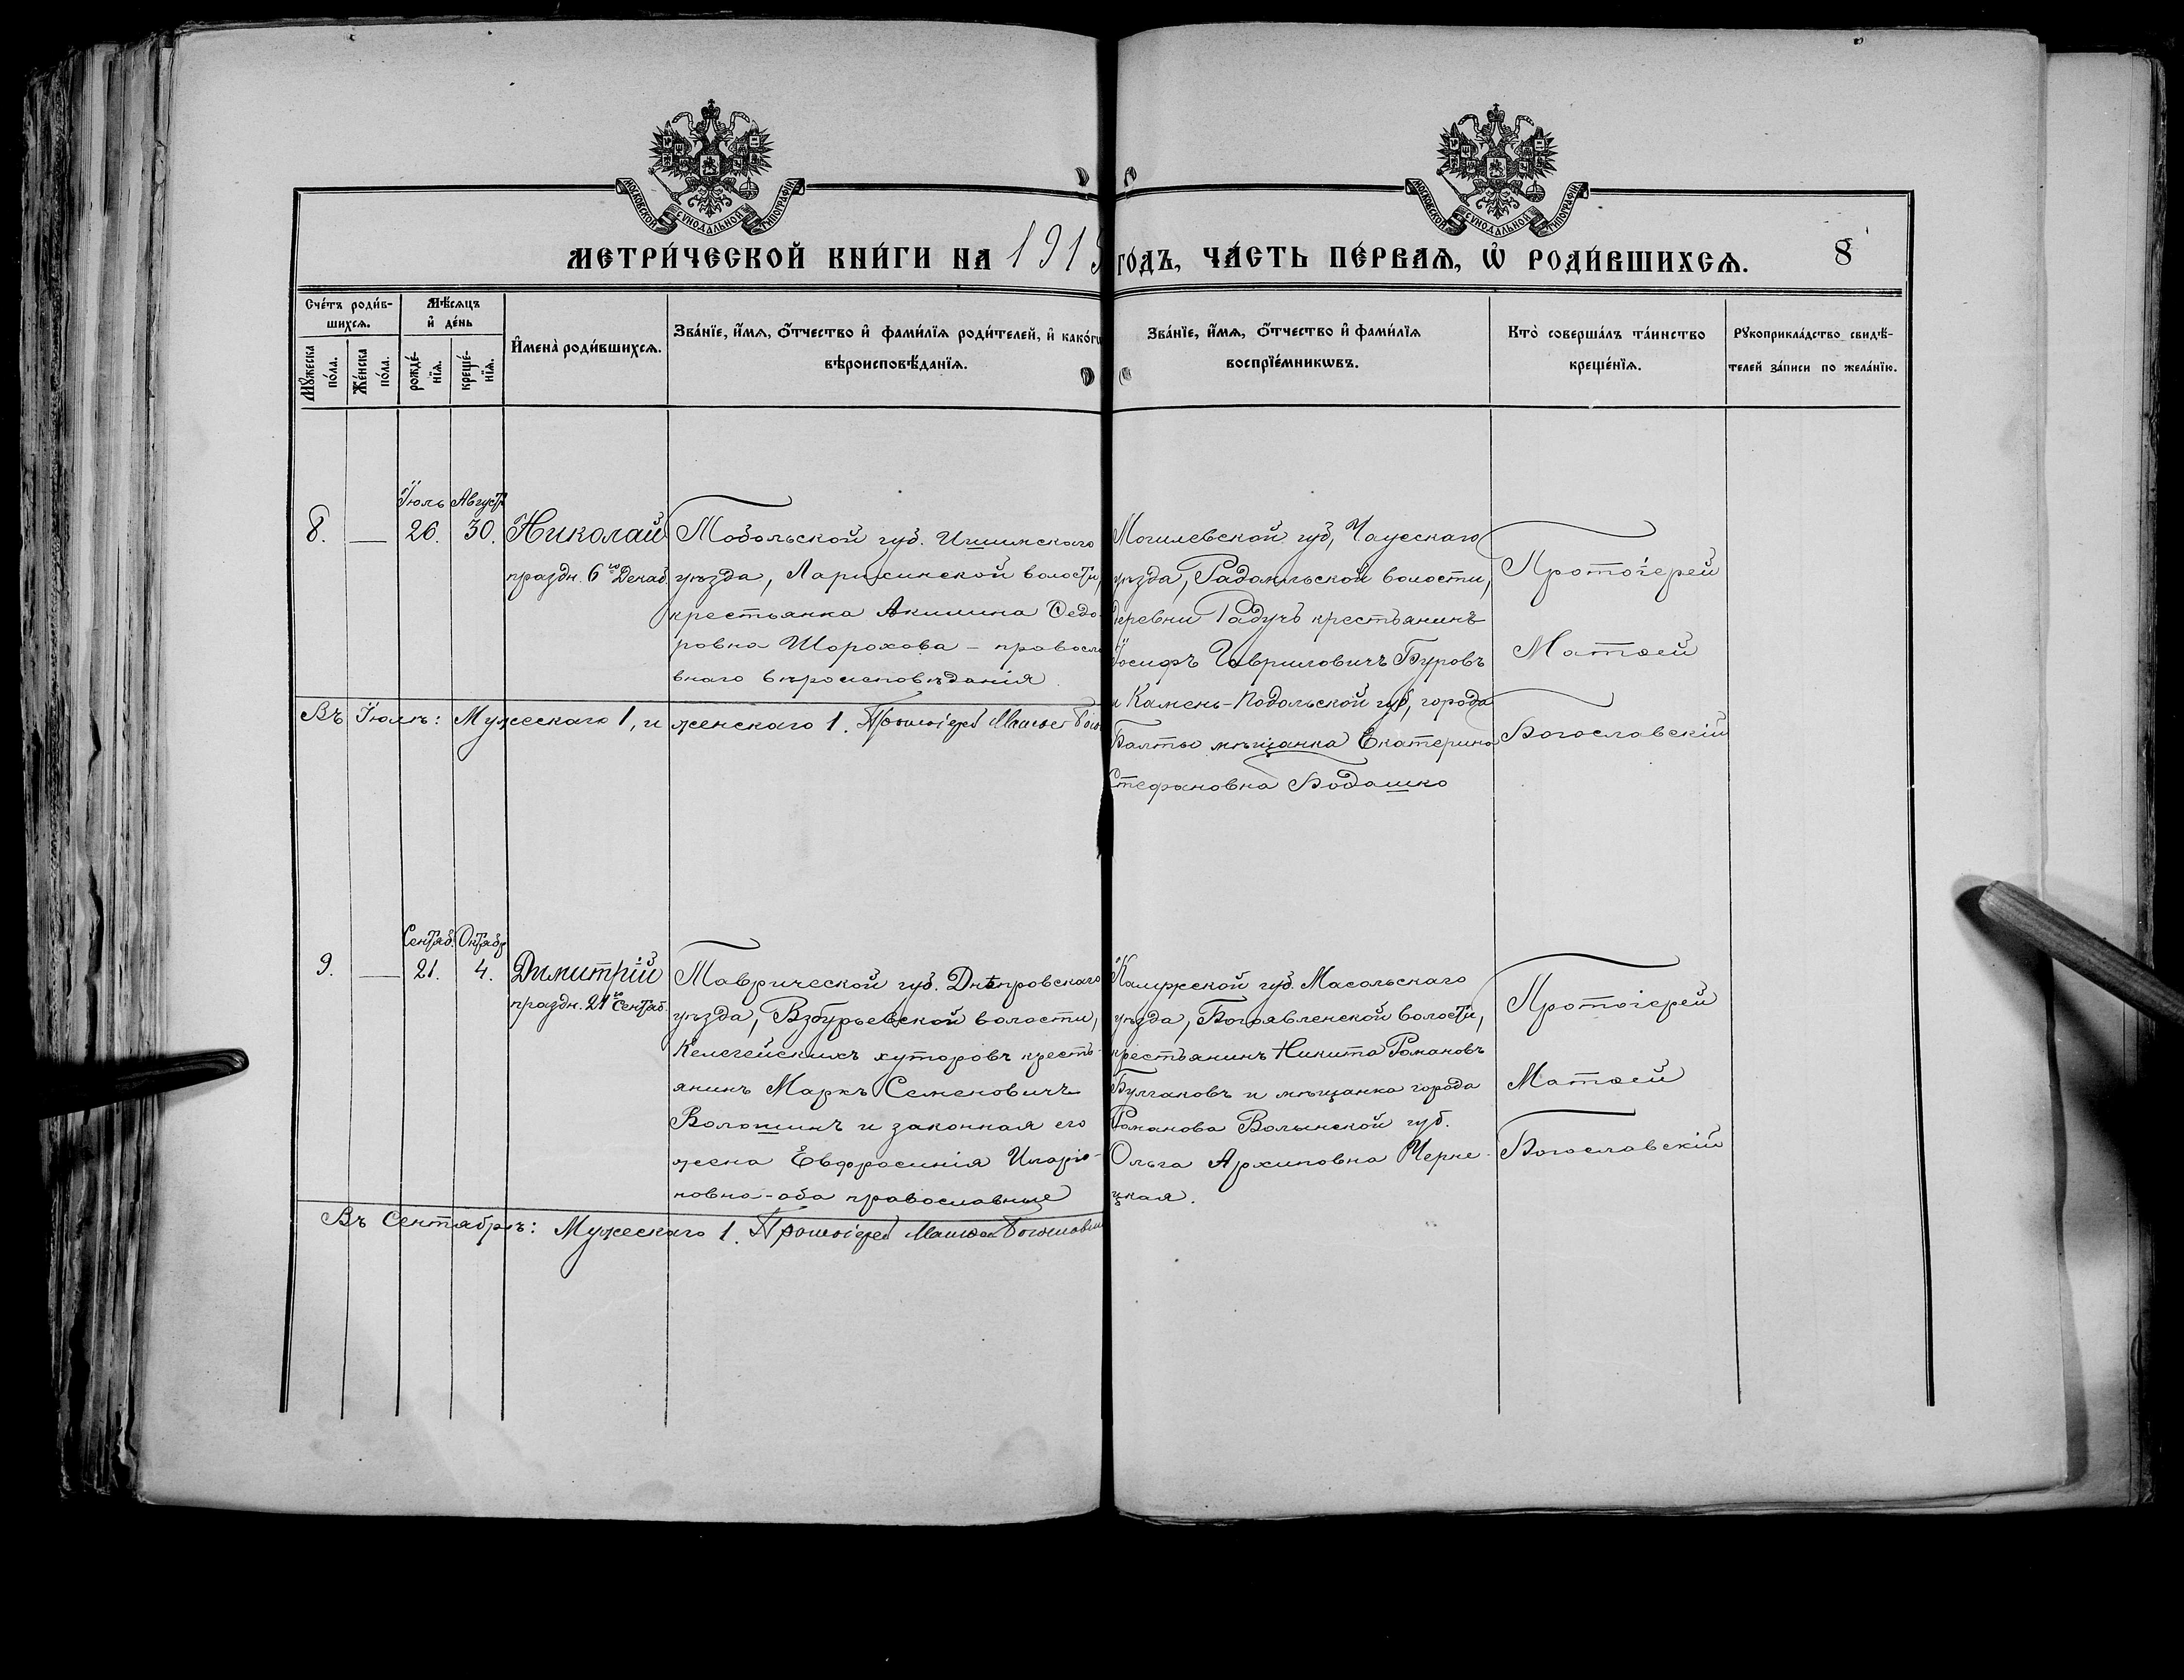 МОСКОВСКОЙ СѴНОДАЛЬНОЙ ТИПОГРАФІИ
МОСКОВСКОЙ СѴНОДАЛЬНОЙ ТИПОГРАФІИ
МЕТРИ́ЧЕСКОЙ КНИ́ГИ НА 1913
ГО́ДЪ, ЧА́СТЬ ПЕ́РВАѦ, Ѡ҆ РОДИ́ВШИХСѦ.
8
Сче́тъ роди́в-
шихсѧ.
Мꙋ́жеска
по́ла.
Же́нска
по́ла.
Мѣ́сѧцъ
и҆ де́нь
рожде́-
нїѧ.
креще́-
нїѧ.
И҆мена̀ роди́вшихсѧ.
Зва́нїе, и҆́мѧ, ѻ҆́тчество и҆ фами́лїѧ роди́телей, и҆ како́гѡ
вѣроисповѣ́данїѧ.
Зва́нїе, и҆́мѧ, ѻ҆́тчество и҆ фами́лїѧ
воспрїе́мникѡвъ.
Кто̀ соверша́лъ та́инство
креще́нїѧ.
Рꙋкоприкла́дство свидѣ́-
телей за́писи по жела́нїю.
Іюль Августъ
8. — 26. 30.
Николай
праздн. 6го Декаб.
Тобольской губ. Ишимскаго
уѣзда, Ларихинской волости,
крестьянка Акилина Ѳедо-
ровна Шорохова - правосла
внаго вѣроисповѣданія.
Могилевской губ, Чаусскаго
уѣзда, Радомльской волости,
деревни Радучъ крестьянинъ
Іосифъ Гавриловичъ Буровъ
и Камень-Подольской губ, города
Балты мѣщанка Екатерина
Стефановна Бодашко
Протоіерей
Матѳей
Богословскій
Въ Іюлѣ: Мужескаго 1, и женскаго 1. Протоіерей Матѳей Бого
Сентяб. Октябр
9. — 21. 4.
Димитрій
праздн. 21го Сентяб.
Таврической губ. Днѣпровскаго
уѣзда, Взбурьевской волости,
Келегейскихъ хуторовъ кресть-
янинъ Маркъ Семеновичъ
Волошинъ и законная его
жена Евфросинія Иларіо-
новна - оба православные
Калужской губ. Масольскаго
уѣзда, Богоявленской волости,
крестьянинъ Никита Романовъ
Булгаковъ и мѣщанка города
Романова Волынской губ.
Ольга Архиповна Черне-
цкая.
Протоіерей
Матѳей
Богословскій
Въ Сентябрѣ: Мужескаго 1. Протоіерей Матѳей Богословск